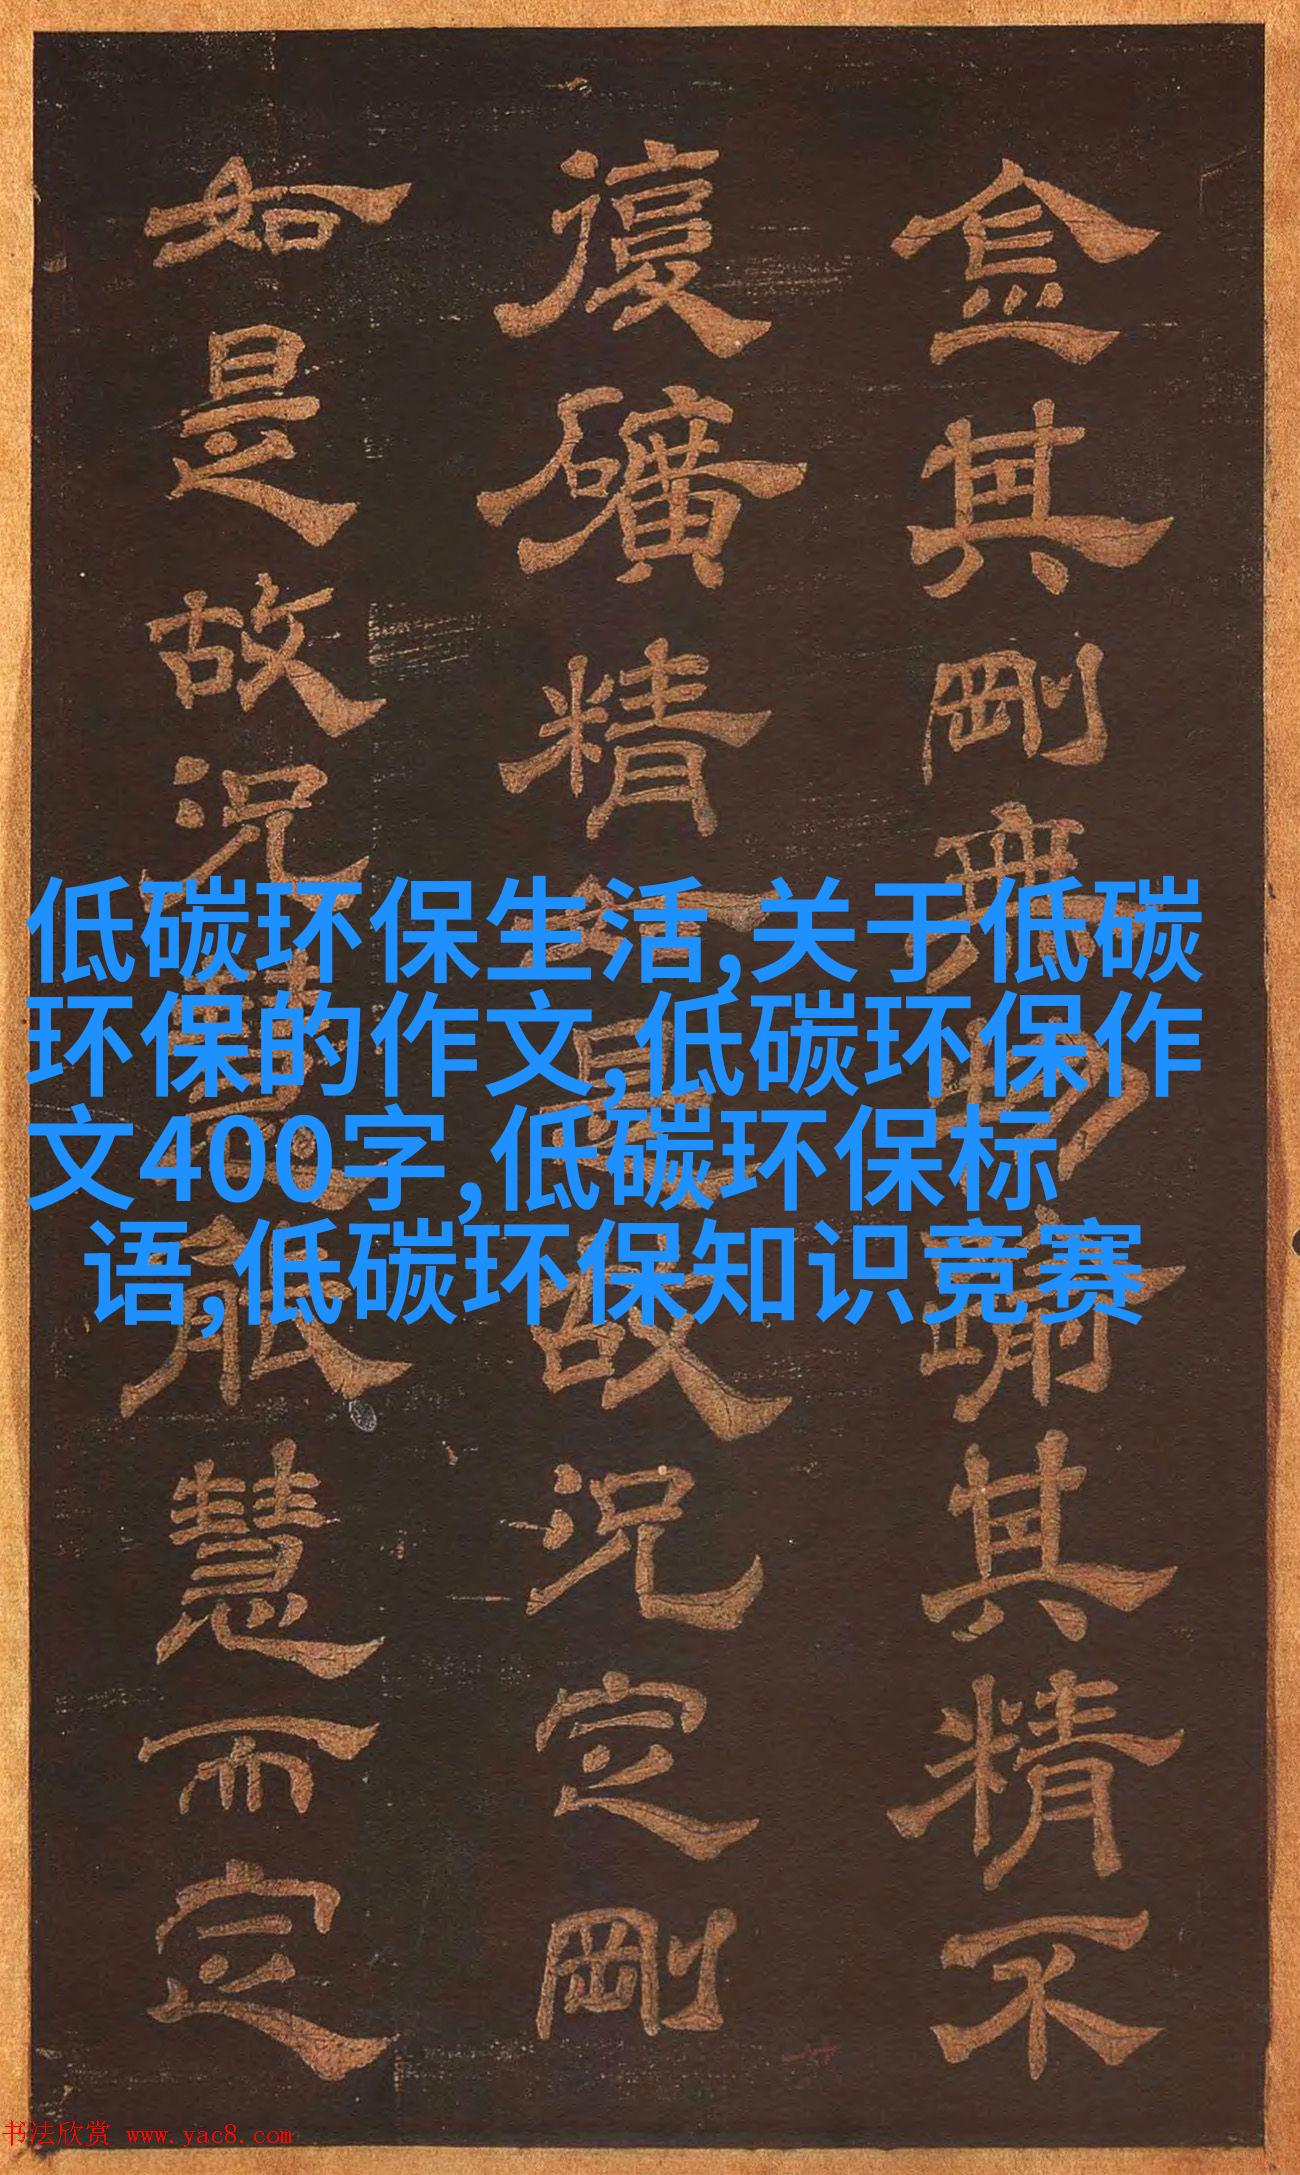 金其剛無物踰其精不
復礦精如是故況定剛
如是故況慧能慧而定
低碳环保生活,关于低碳
环保的作文,低碳环保作
文400字,低碳环保标
语,低碳环保知识竞赛
书法欣赏 www.yac8.com